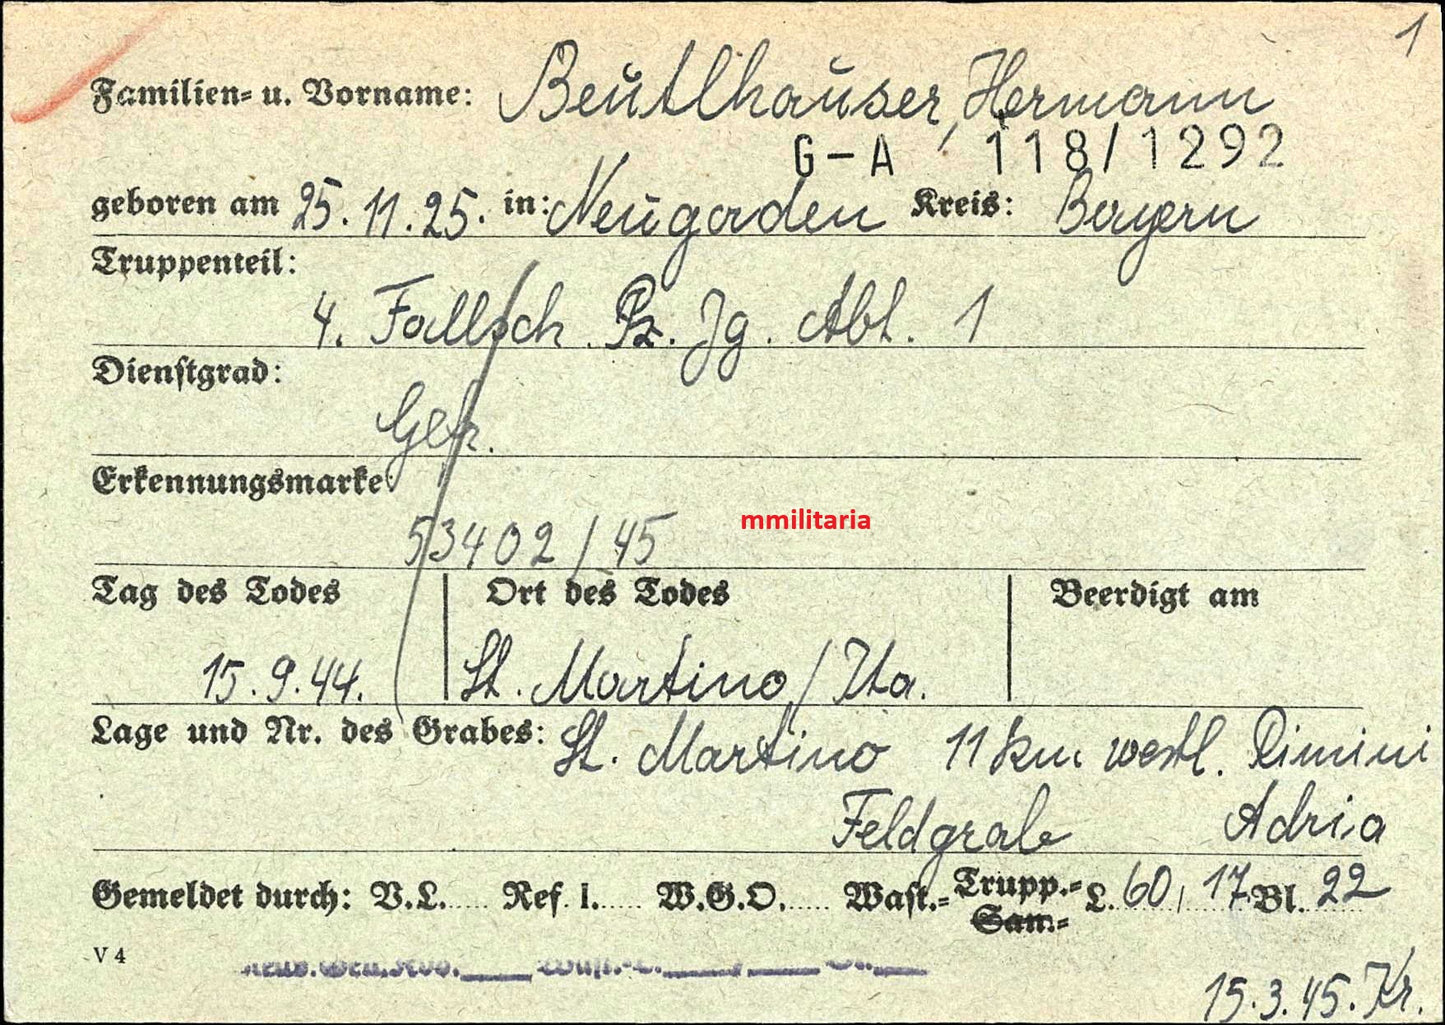 1
Familien- u. Vorname: Beutlhauser, Hermann
G-A 118/1292
geboren am 25.11.25. in: Neugaden Kreis: Bayern
Truppenteil:
4. Fallsch. Pz. Jg. Abt. 1
Dienstgrad:
Gefr.
Erkennungsmarke:
53402/45
mmilitaria
Tag des Todes Ort des Todes Beerdigt am
15.9.44. St. Martino/Ita.
Lage und Nr. des Grabes: St. Martino 11 km westl. Rimini
Feldgrab Adria
Gemeldet durch: V.L..... Ref. I..... W.G.O...... Wast.- Trupp.- L. 60, 17 Bl. 22
San.-
V 4
15.3.45. Kr.